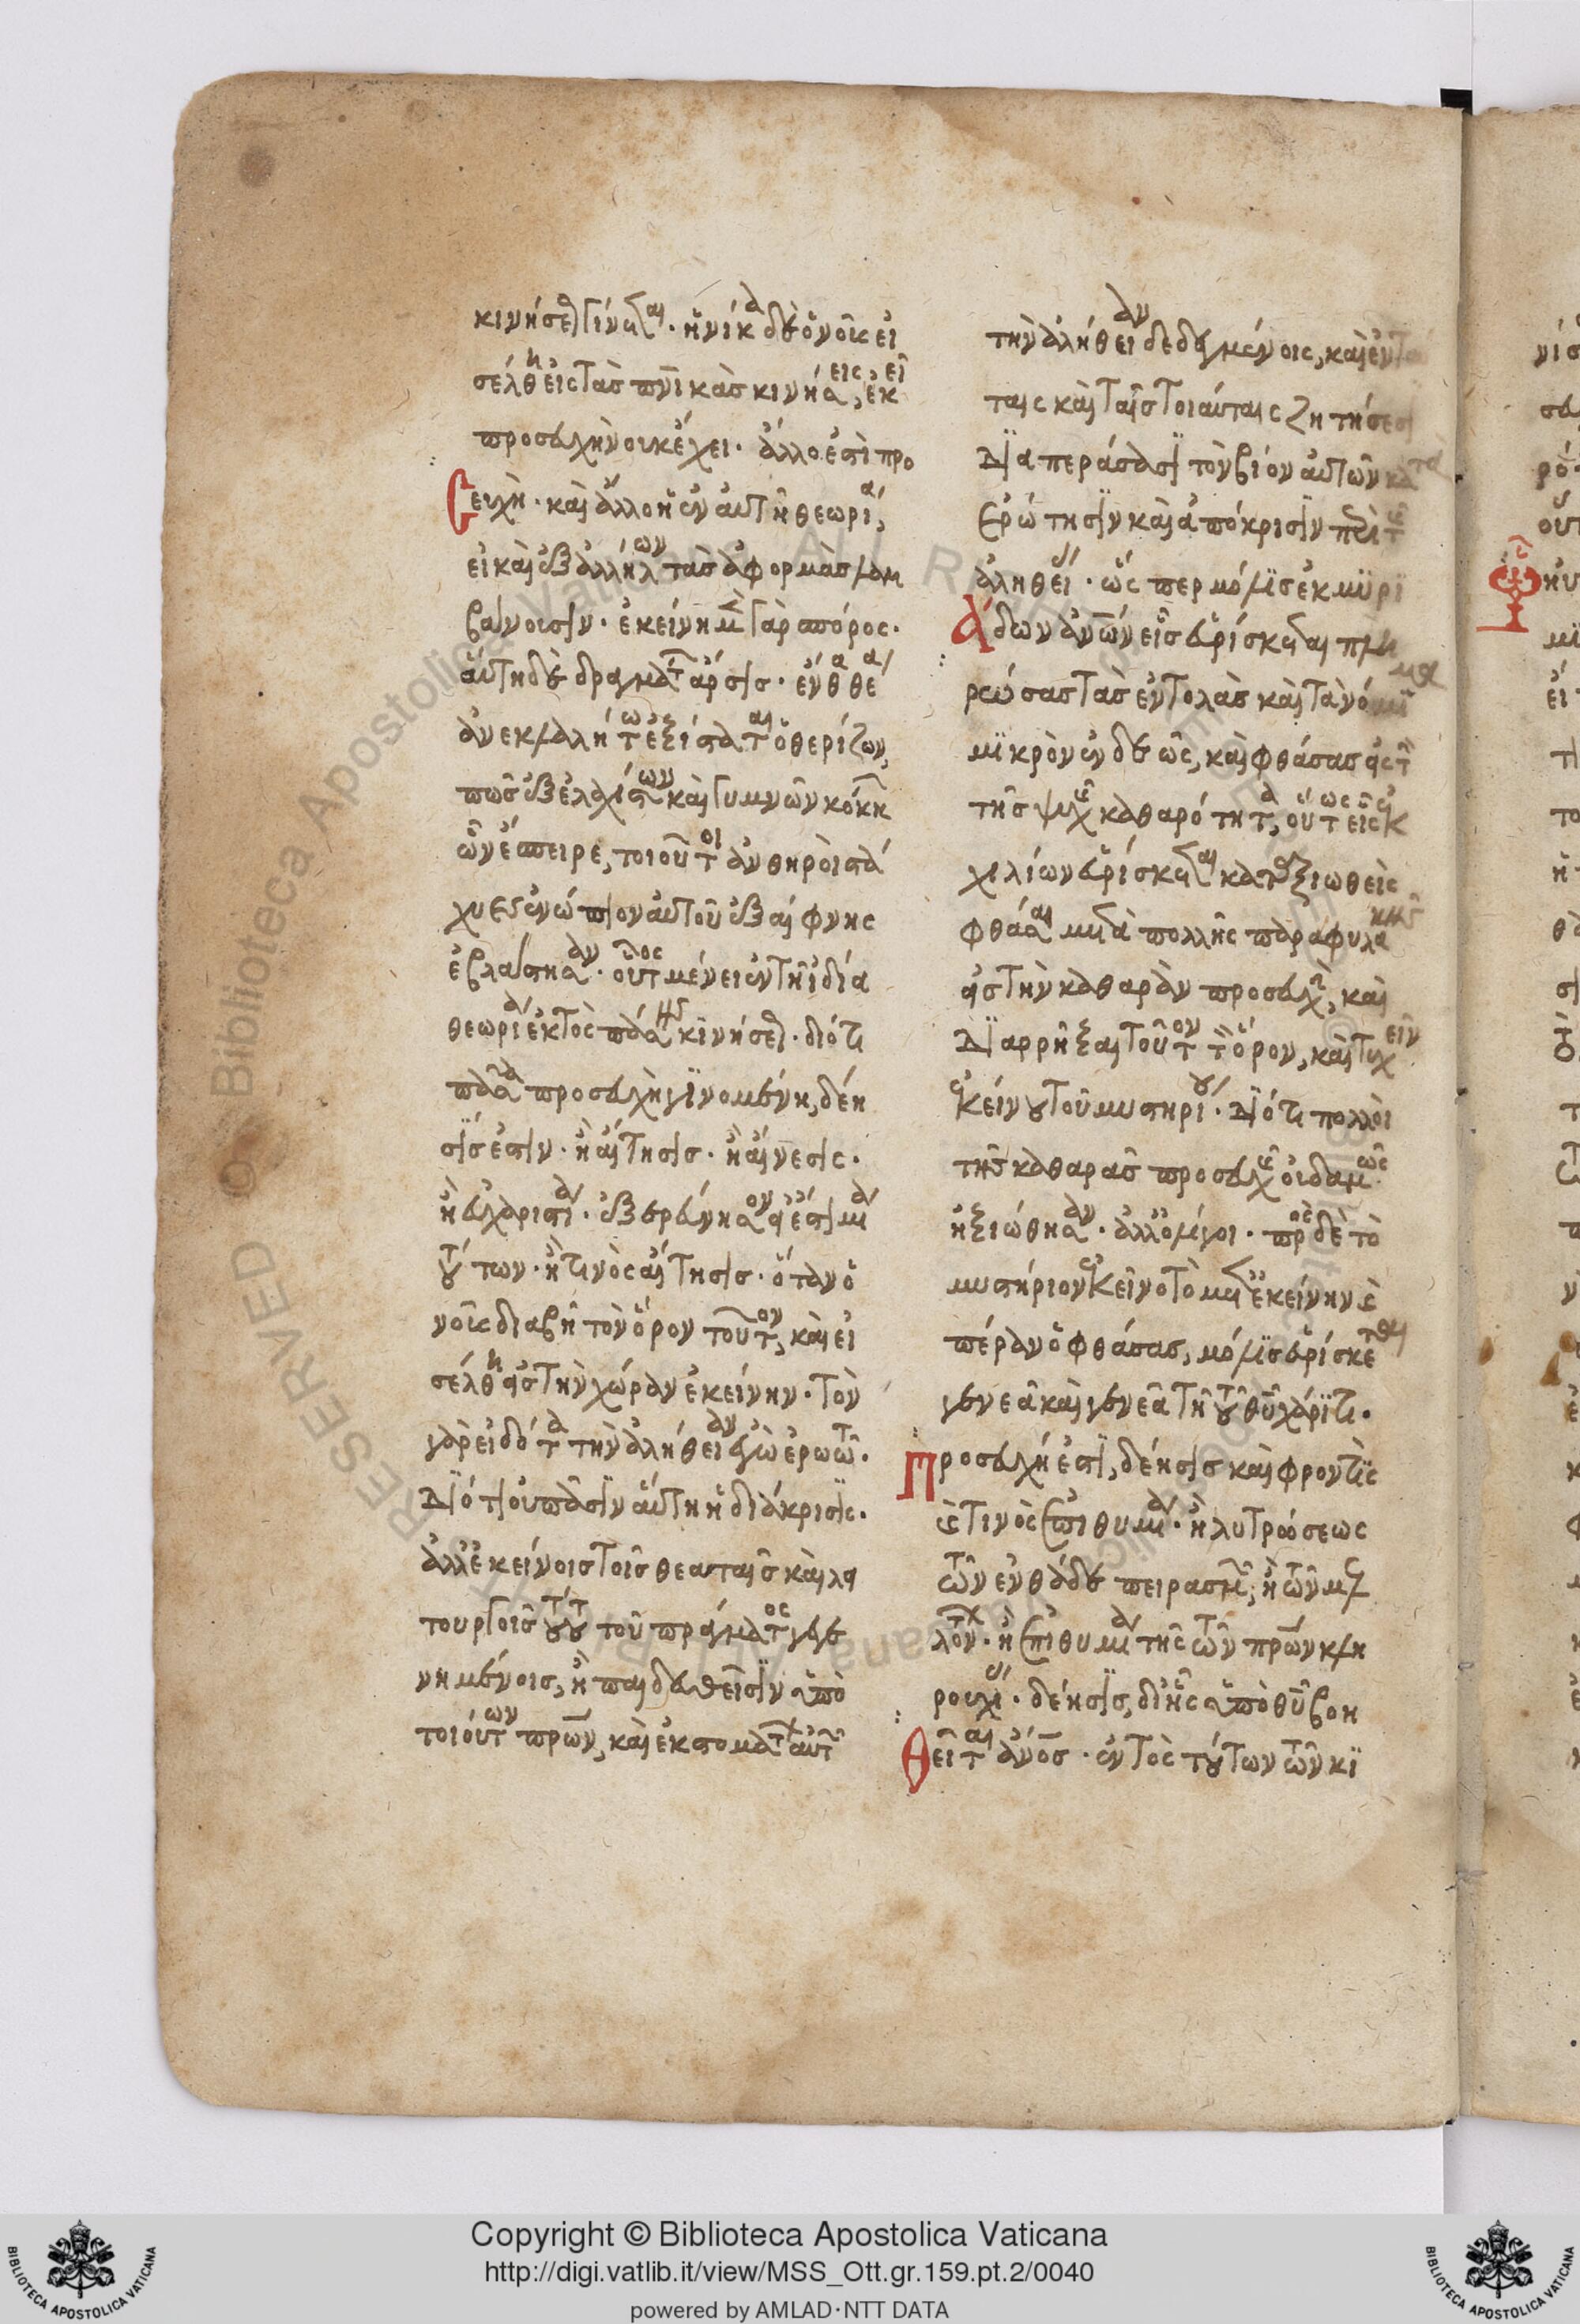 κινήσει γίνεται· ἡνίκα δὲ ὁ νοῦς εἰ
σέλθη εἰς τὰς πνικὰς κινήσεις, ἐκεῖ
προσευχὴν οὐκ ἔχει· ἄλλο ἐστὶ προ
σευχὴ· καὶ ἄλλο ἡ ἐν αὐτῇ θεωρία,
εἰ καὶ ἐξ ἀλλήλων τὰς ἀφορμὰς λαμ
βάνουσιν· ἐκείνη μὲν γὰρ σπόρος·
αὕτη δὲ δραγμάτων ἄρσις· ἔνθα θέα
ἀνεκλαλήτω ἐξίσταται ὁ θερίζων,
πῶς ἐξ ἐλαχίστων καὶ γυμνῶν κόκκων
ὧν ἔσπειρε, τοιοῦτοι ἀνθηροὶ στά
χυες ἐνώπιον αὐτοῦ ἐξαίφνης
ἐβλάστησαν· οὗτος μένει ἐν τῇ ἰδία
θεωρία ἐκτὸς πάσης κινήσεως· διότι
πᾶσα προσευχὴ γινομένη, δέη
σίς ἐστιν· ἢ αἴτησις· ἢ αἴνεσις·
ἢ εὐχαριστία· ἐξερεύνησον εἰ ἔστι μία
τούτων· ἢ τινὸς αἴτησις· ὅταν ὁ
νοῦς διαβῆ τὸν ὅρον τοῦτον, καὶ εἰ
σέλθη εἰς τὴν χώραν ἐκείνην· τὸν
γὰρ εἰδότα τὴν ἀλήθειαν ἐγὼ ἐρωτῶ·
διότι οὐ πᾶσιν αὕτη ἡ διάκρισις·
ἀλλ' ἐκείνοις τοῖς θεαταῖς καὶ λει
τουργοῖς τούτου τοῦ πράγματος γεγε
νημένοις, ἢ παιδευθεῖσιν ἀπὸ
τοιούτων πρων, καὶ ἐκ στομάτων αὐτῶν
τὴν ἀλήθειαν δεδεγμένοις, καὶ ἐν ταύ
ταις καὶ ταῖς τοιαύταις ζητήσεσι
διαπεράσασι τὸν βίον αὐτῶν κατὰ
ἐρώτησιν καὶ ἀπόκρισιν περὶ τῆς
ἀληθείας· ὥσπερ μόλις ἐκ μυρι
άδων ἀνων εἷς εὑρίσκεται πλη
ρώσας τὰς ἐντολὰς καὶ τὰ νόμιμα
μικρὸν ἐνδεῶς, καὶ φθάσας εἰς τὴν
τῆς ψυχῆς καθαρότητα, οὕτως εἷς ἐκ
χιλίων εὑρίσκεται καταξιωθεὶς
φθάσαι μετὰ πολλῆς παραφυλακῆς
εἰς τὴν καθαρὰν προσευχὴν, καὶ
διαρρῆξαι τοῦτον τὸν ὅρον, καὶ τυχεῖν
ἐκείνου τοῦ μυστηρίου· διότι πολλοὶ
τῆς καθαρᾶς προσευχῆς οὐδαμῶς
ἠξιώθησαν· ἀλλ' ὀλίγοι· πρὸς δὲ τὸ
μυστήριον ἐκεῖνο τὸ μετ' ἐκείνην καὶ
πέραν ὁ φθάσας, μόλις εὑρίσκεται
γενεᾶ καὶ γενεᾶ τῇ τοῦ θυ χάριτι·
Προσευχή ἐστι, δέησις καὶ φροντὶς
καὶ τινὸς ἐπιθυμία· ἢ λυτρώσεως
τῶν ἐνθάδε πειρασμῶν, ἢ τῶν μελ
λόντων· ἢ ἐπιθυμία τῆς τῶν πρων κλη
ρουχίας· δέησις, δι' ἧς ἀπὸ θυ βοη
θεῖται ἀνος· ἐντὸς τούτων τῶν κι